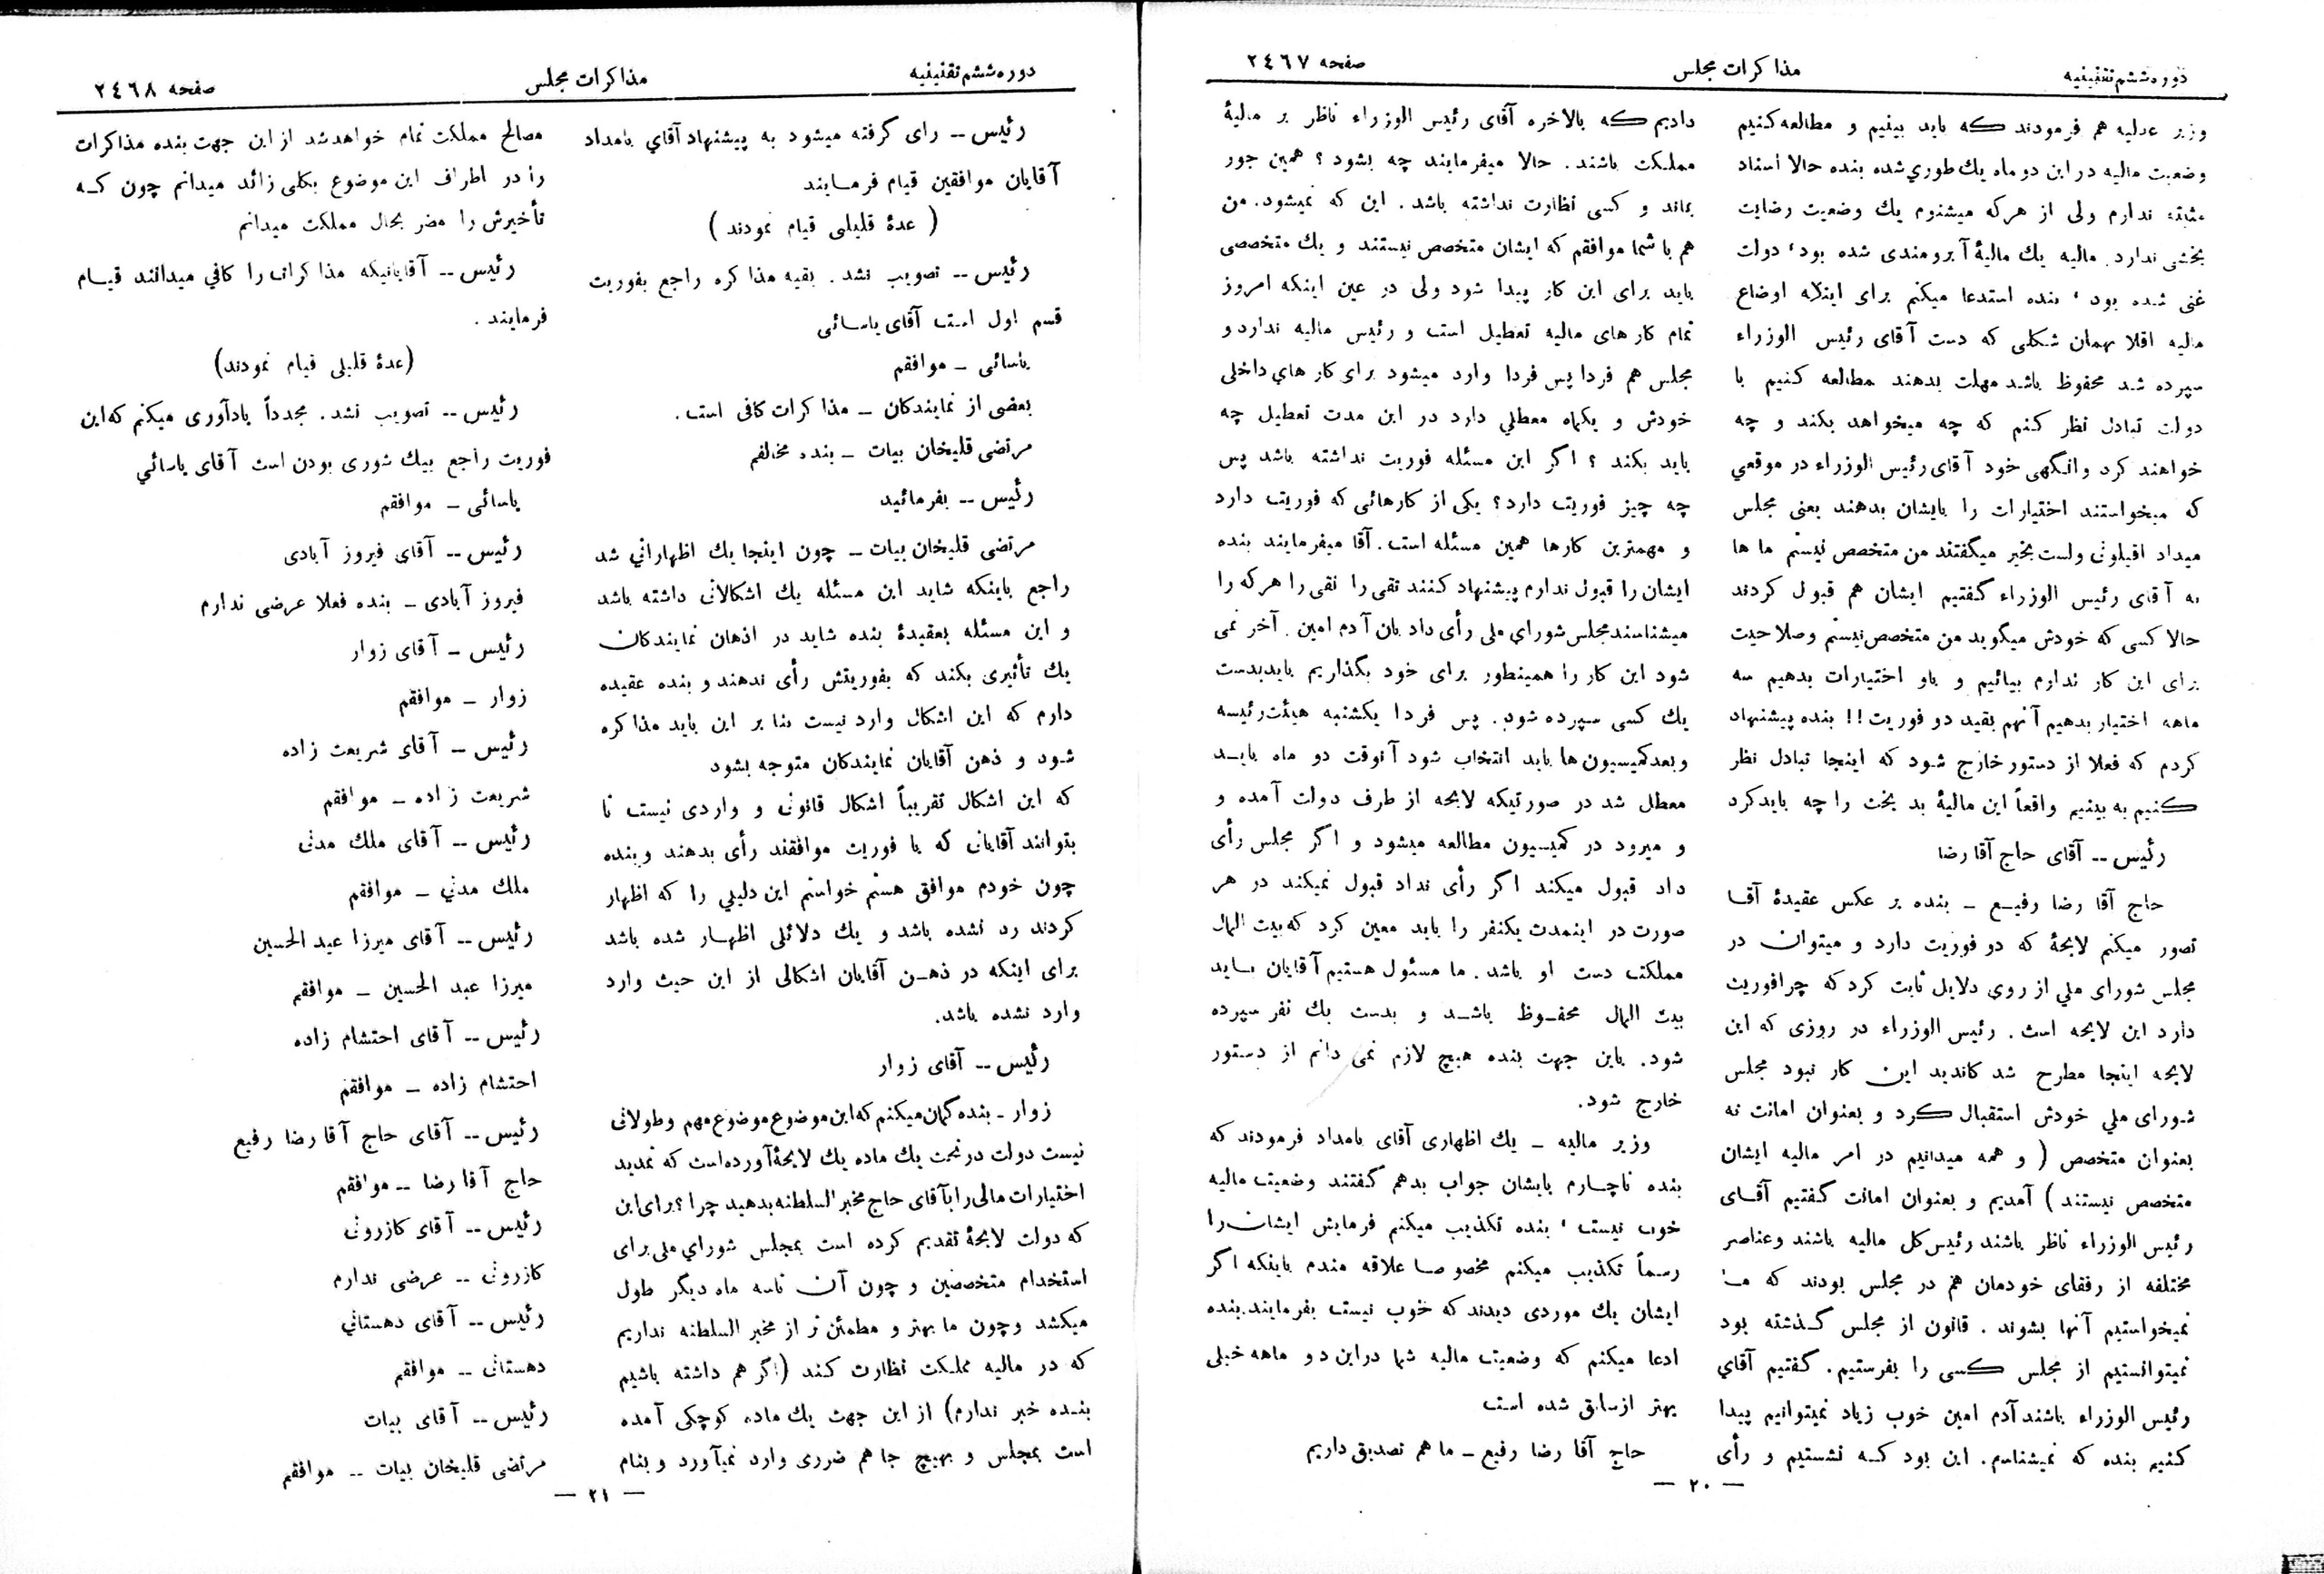 دوره ششم تقنینیه
مذاکرات مجلس
صفحه ٢٤٦٧
وزیر عدلیه هم فرمودند که باید ببینیم و مطالعه کنیم
وضعیت مالیه در این دو ماه یك طوري شده بنده حالا اسناد
مثبته ندارم ولی از هر که میشنوم یك وضعیت رضایت
بخشی ندارد. مالیه یك مالیهٔ آبرومندی شده بود، دولت
غنی شده بود، بنده استدعا میکنم برای اینکه اوضاع
مالیه اقلا بهمان شکلی که دست آقای رئیس الوزراء
سپرده شد محفوظ باشد مهلت بدهند مطالعه کنیم با
دولت تبادل نظر کنم که چه میخواهد بکند و چه
خواهند کرد وانگهی خود آقای رئیس الوزراء در موقعي
که میخواستند اختیارات را بایشان بدهند یعنی مجلس
میداد اقبلونی ولست بخیر میگفتند من متخصص نیستم ماها
به آقای رئیس الوزراء گفتیم ایشان هم قبول کردند
حالا کسی که خودش میگوید من متخصص نیستم وصلاحیت
برای این کار ندارم بیائیم و باو اختیارات بدهیم سه
ماهه اختیار بدهیم آنهم بقید دو فوریت!! بنده پیشنهاد
کردم که فعلا از دستور خارج شود که اینجا تبادل نظر
کنیم به بینیم واقعاً این مالیهٔ بد بخت را چه باید کرد
رئیس -- آقای حاج آقا رضا
حاج آقا رضا رفیع - بنده بر عکس عقیدهٔ آقا
تصور میکنم لایحهٔ که دو فوریت دارد و میتوان در
مجلس شورای ملي از روي دلایل ثابت کرد که چرا فوریت
دارد این لایحه است. رئیس الوزراء در روزی که این
لایحه اینجا مطرح شد کاندید این کار نبود مجلس
شورای ملي خودش استقبال کرد و بعنوان امانت نه
بعنوان متخصص (و همه میدانیم در امر مالیه ایشان
متخصص نیستند) آمدیم و بعنوان امانت گفتیم آقای
رئیس الوزراء ناظر باشند رئیس کل مالیه باشند وعناصر
مختلفه از رفقای خودمان هم در مجلس بودند که ما
نمیخواستیم آنها بشوند. قانون از مجلس گذشته بود
نمیتوانستیم از مجلس کسی را بفرستیم. گفتیم آقاي
رئیس الوزراء باشند آدم امین خوب زیاد نمیتوانیم پیدا
کنیم بنده که نمیشناسم. این بود که نشستیم و رأی
دادیم که بالاخره آقای رئیس الوزراء ناظر بر مالیهٔ
مملکت باشند. حالا میفرمایند چه بشود؟ همین جور
بماند و کسی نظارت نداشته باشد. این که نمیشود. من
هم با شما موافقم که ایشان متخصص نیستند و یك متخصصی
باید برای این کار پیدا شود ولی در عین اینکه امروز
تمام کارهای مالیه تعطیل است و رئیس مالیه ندارد و
مجلس هم فردا پس فردا وارد میشود برای کارهاي داخلی
خودش و یکماه معطلي دارد در این مدت تعطیل چه
باید بکند؟ اگر این مسئله فوریت نداشته باشد پس
چه چیز فوریت دارد؟ یکی از کارهائی که فوریت دارد
و مهمترین کارها همین مسئله است. آقا میفرمایند بنده
ایشان را قبول ندارم پیشنهاد کنند تقی را نقی را هر که را
میشناسند مجلس شوراي ملی رأی داد بان آدم امین. آخر نمی
شود این کار را همینطور برای خود بگذاریم باید بدست
یك کسی سپرده شود. پس فردا یکشنبه هیئت رئیسه
وبعد کمیسیون ها باید انتخاب شود آنوقت دو ماه باید
معطل شد در صورتیکه لایحه از طرف دولت آمده و
و میرود در کمیسیون مطالعه میشود و اگر مجلس رأی
داد قبول میکند اگر رأی نداد قبول نمیکند در هر
صورت در اینمدت یکنفر را باید معین کرد که بیت المال
مملکت دست او باشد. ما مسئول هستیم آقایان باید
بیت المال محفوظ باشد و بدست یك نفر سپرده
شود. باین جهت بنده هیچ لازم نمی دانم از دستور
خارج شود.
وزیر مالیه - یك اظهاری آقای بامداد فرمودند که
بنده ناچارم بایشان جواب بدهم گفتند وضعیت مالیه
خوب نیست، بنده تکذیب میکنم فرمایش ایشان را
رسماً تکذیب میکنم مخصوصا علاقه مندم باینکه اگر
ایشان یك موردی دیدند که خوب نیست بفرمایند. بنده
ادعا میکنم که وضعیت مالیه شما در این دو ماهه خیلی
بهتر از سابق شده است
حاج آقا رضا رفیع - ما هم تصدیق داریم
— ٢٠ —
دوره ششم تقنینیه
مذاکرات مجلس
صفحه ٢٤٦٨
رئیس -- رای گرفته میشود به پیشنهاد آقاي بامداد
آقایان موافقین قیام فرمایند
(عدهٔ قلیلی قیام نمودند)
رئیس -- تصویب نشد. بقیه مذاکره راجع بفوریت
قسم اول است آقای یاسائی
یاسائی - موافقم
بعضی از نمایندگان - مذاکرات کافی است.
مرتضی قلیخان بیات - بنده مخالفم
رئیس -- بفرمائید
مرتضی قلیخان بیات - چون اینجا یك اظهاراتي شد
راجع باینکه شاید این مسئله یك اشکالاتی داشته باشد
و این مسئله بعقیدهٔ بنده شاید در اذهان نمایندگان
یك تأثیری بکند که بفوریتش رأی ندهند و بنده عقیده
دارم که این اشکال وارد نیست بنا بر این باید مذاکره
شود و ذهن آقایان نمایندکان متوجه بشود
که این اشکال تقریباً اشکال قانونی و واردی نیست تا
بتوانند آقایانی که با فوریت موافقند رأی بدهند و بنده
چون خودم موافق هستم خواستم این دلیلي را که اظهار
کردند رد نشده باشد و یك دلائلی اظهار شده باشد
برای اینکه در ذهن آقایان اشکالی از این حیث وارد
وارد نشده باشد.
رئیس -- آقای زوار
زوار - بنده گمان میکنم که این موضوع موضوع مهم و طولانی
نیست دولت در تحت یك ماده یك لایحهٔ آورده است که تمدید
اختیارات مالی را بآقای حاج مخبر السلطنه بدهید چرا؟ برای این
که دولت لایحهٔ تقدیم کرده است بمجلس شوراي ملی برای
استخدام متخصصین و چون آن تا سه ماه دیگر طول
میکشد و چون ما بهتر و مطمئن تر از مخبر السلطنه نداریم
که در مالیه مملکت نظارت کند (اگر هم داشته باشیم
بنده خبر ندارم) از این جهت یك ماده کوچکی آمده
است بمجلس و بهیچ جا هم ضرری وارد نمیآورد و بنام
مصالح مملکت تمام خواهد شد از این جهت بنده مذاکرات
را در اطراف این موضوع بکلی زائد میدانم چون که
تأخیرش را مضر بحال مملکت میدانم
رئیس -- آقایانیکه مذاکرات را کافي میدانند قیام
فرمایند.
(عدهٔ قلیلی قیام نمودند)
رئیس -- تصویب نشد. مجدداً یادآوری میکنم که این
فوریت راجع بیك شوری بودن است آقای یاسائي
یاسائی - موافقم
رئیس -- آقای فیروز آبادی
فیروز آبادی - بنده فعلا عرضی ندارم
رئیس - آقای زوار
زوار - موافقم
رئیس - آقای شریعت زاده
شریعت زاده - موافقم
رئیس -- آقای ملك مدنی
ملك مدني - موافقم
رئیس -- آقای میرزا عبد الحسین
میرزا عبد الحسین - موافقم
رئیس -- آقای احتشام زاده
احتشام زاده - موافقم
رئیس -- آقای حاج آقا رضا رفیع
حاج آقا رضا -- موافقم
رئیس -- آقای کازرونی
کازرونی -- عرضی ندارم
رئیس -- آقای دهستاني
دهستانی -- موافقم
رئیس -- آقای بیات
مرتضی قلیخان بیات -- موافقم
— ٢١ —